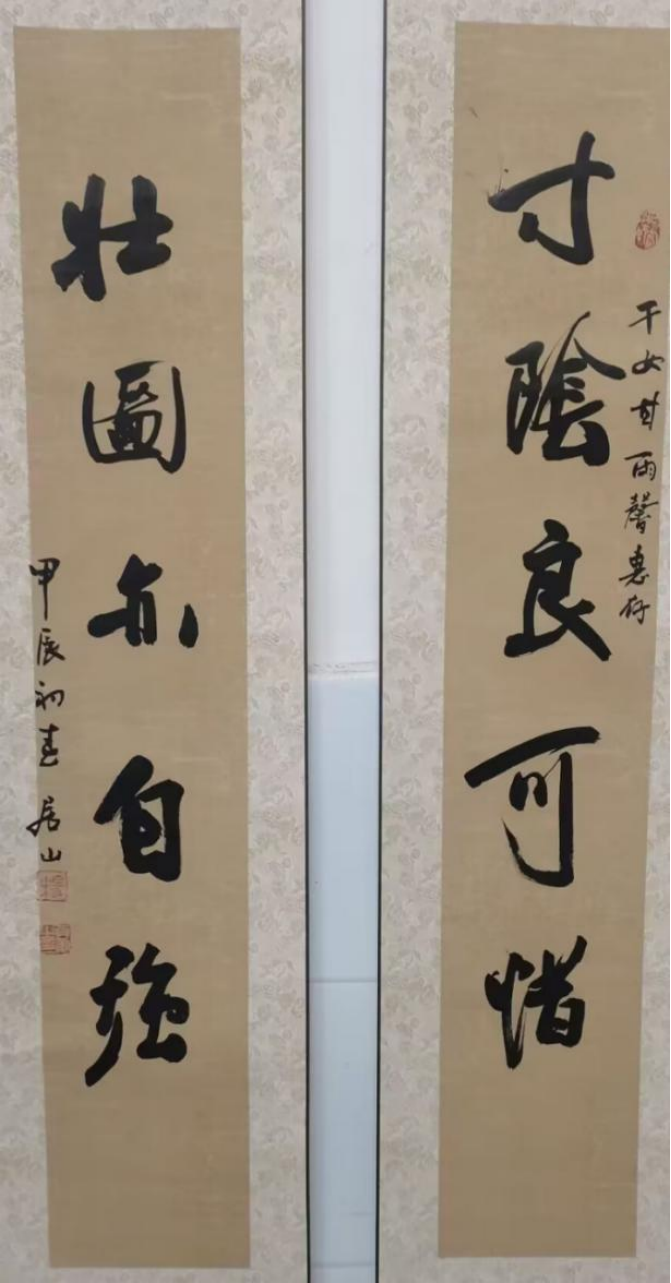 寸陰良可惜
干女甘雨馨惠存
壯圖亦自強
甲辰初春 居山